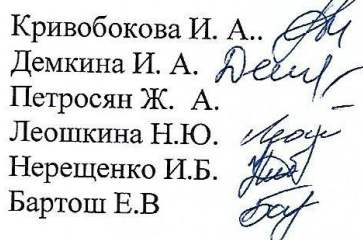 Кривобокова И. А..
Демкина И. А.
Петросян Ж. А.
Леошкина Н.Ю.
Нерещенко И.Б.
Бартош Е.В